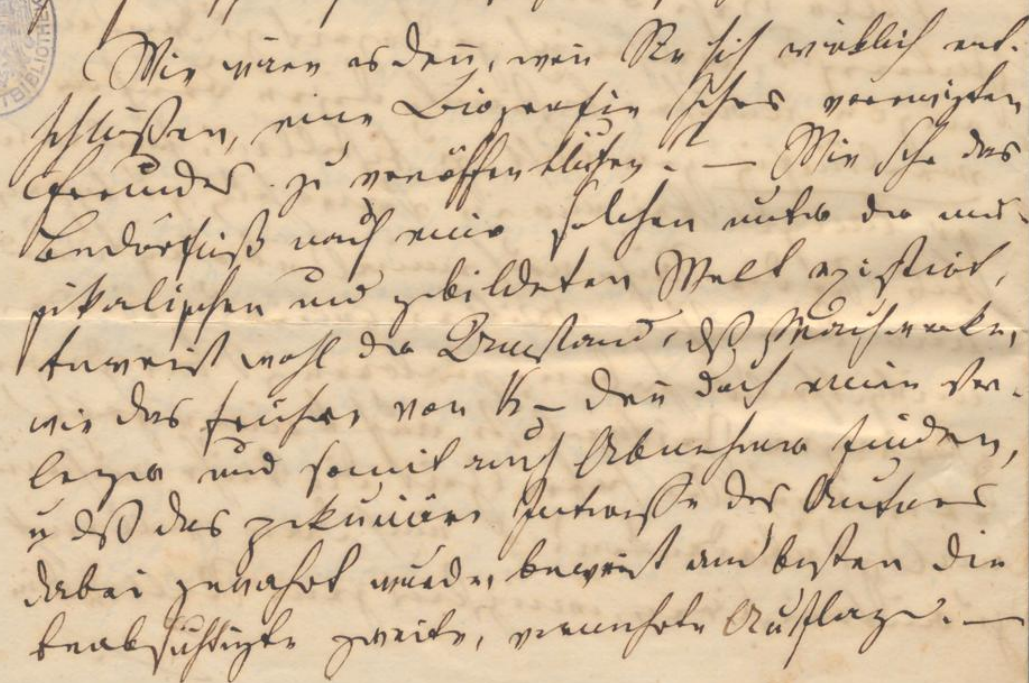 Wie wäre es denn, wenn Sie sich wirklich ent-
schlößen, eine Biografie Ihres verewigten
Freundes zu veröffentlichen? — Wie sehr das
Bedürfniß nach einer solchen unter der mu-
sikalischen und gebildeten Welt existirt,
beweist wohl der Umstand, dß Machwerke,
wie das frühere von K— denn doch einen Ver-
leger und somit auch Abnehmer finden,
u dß das pekuniäre Interesse des Autors
dabei gewahrt wurde, beweist am besten die
beabsichtigte zweite, vermehrte Auflage. —